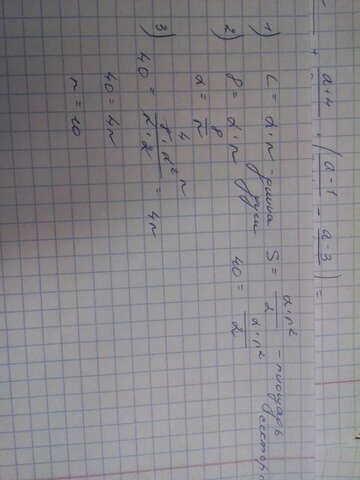 a+4 · (a-1 - a-3) =
1) L = α·r - длина дуги S = α·r²/2 - площадь сектора
2) 8 = α·r 40 = α·r²/2
α = 8/r
3) 40 = 8·r²/r·2 = 4r
40 = 4r
r = 10